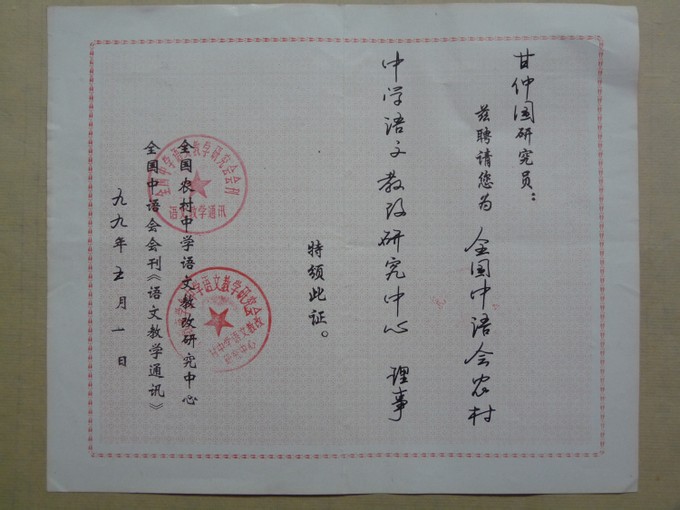 甘仲国研究员：
兹聘请您为 全国中语会农村
中学语文教改研究中心 理事
特颁此证。
全国农村中学语文教改研究中心
全国中语会会刊《语文教学通讯》
九九年五月一日
全国中学语文教学研究会会刊
语文教学通讯
中学语文教学研究会
村中学语文教改
研究中心